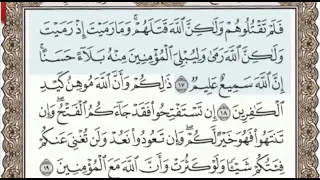 فَلَمْ تَقْتُلُوهُمْ وَلَٰكِنَّ ٱللَّهَ قَتَلَهُمْ ۚ وَمَا رَمَيْتَ إِذْ رَمَيْتَ
وَلَٰكِنَّ ٱللَّهَ رَمَىٰ ۚ وَلِيُبْلِيَ ٱلْمُؤْمِنِينَ مِنْهُ بَلَآءً حَسَنًا ۚ
إِنَّ ٱللَّهَ سَمِيعٌ عَلِيمٌ ١٧ ذَٰلِكُمْ وَأَنَّ ٱللَّهَ مُوهِنُ كَيْدِ
ٱلْكَٰفِرِينَ ١٨ إِن تَسْتَفْتِحُوا۟ فَقَدْ جَآءَكُمُ ٱلْفَتْحُ ۖ وَإِن
تَنتَهُوا۟ فَهُوَ خَيْرٌ لَّكُمْ ۖ وَإِن تَعُودُوا۟ نَعُدْ وَلَن تُغْنِيَ عَنكُمْ
فِئَتُكُمْ شَيْـًٔا وَلَوْ كَثُرَتْ وَأَنَّ ٱللَّهَ مَعَ ٱلْمُؤْمِنِينَ ١٩